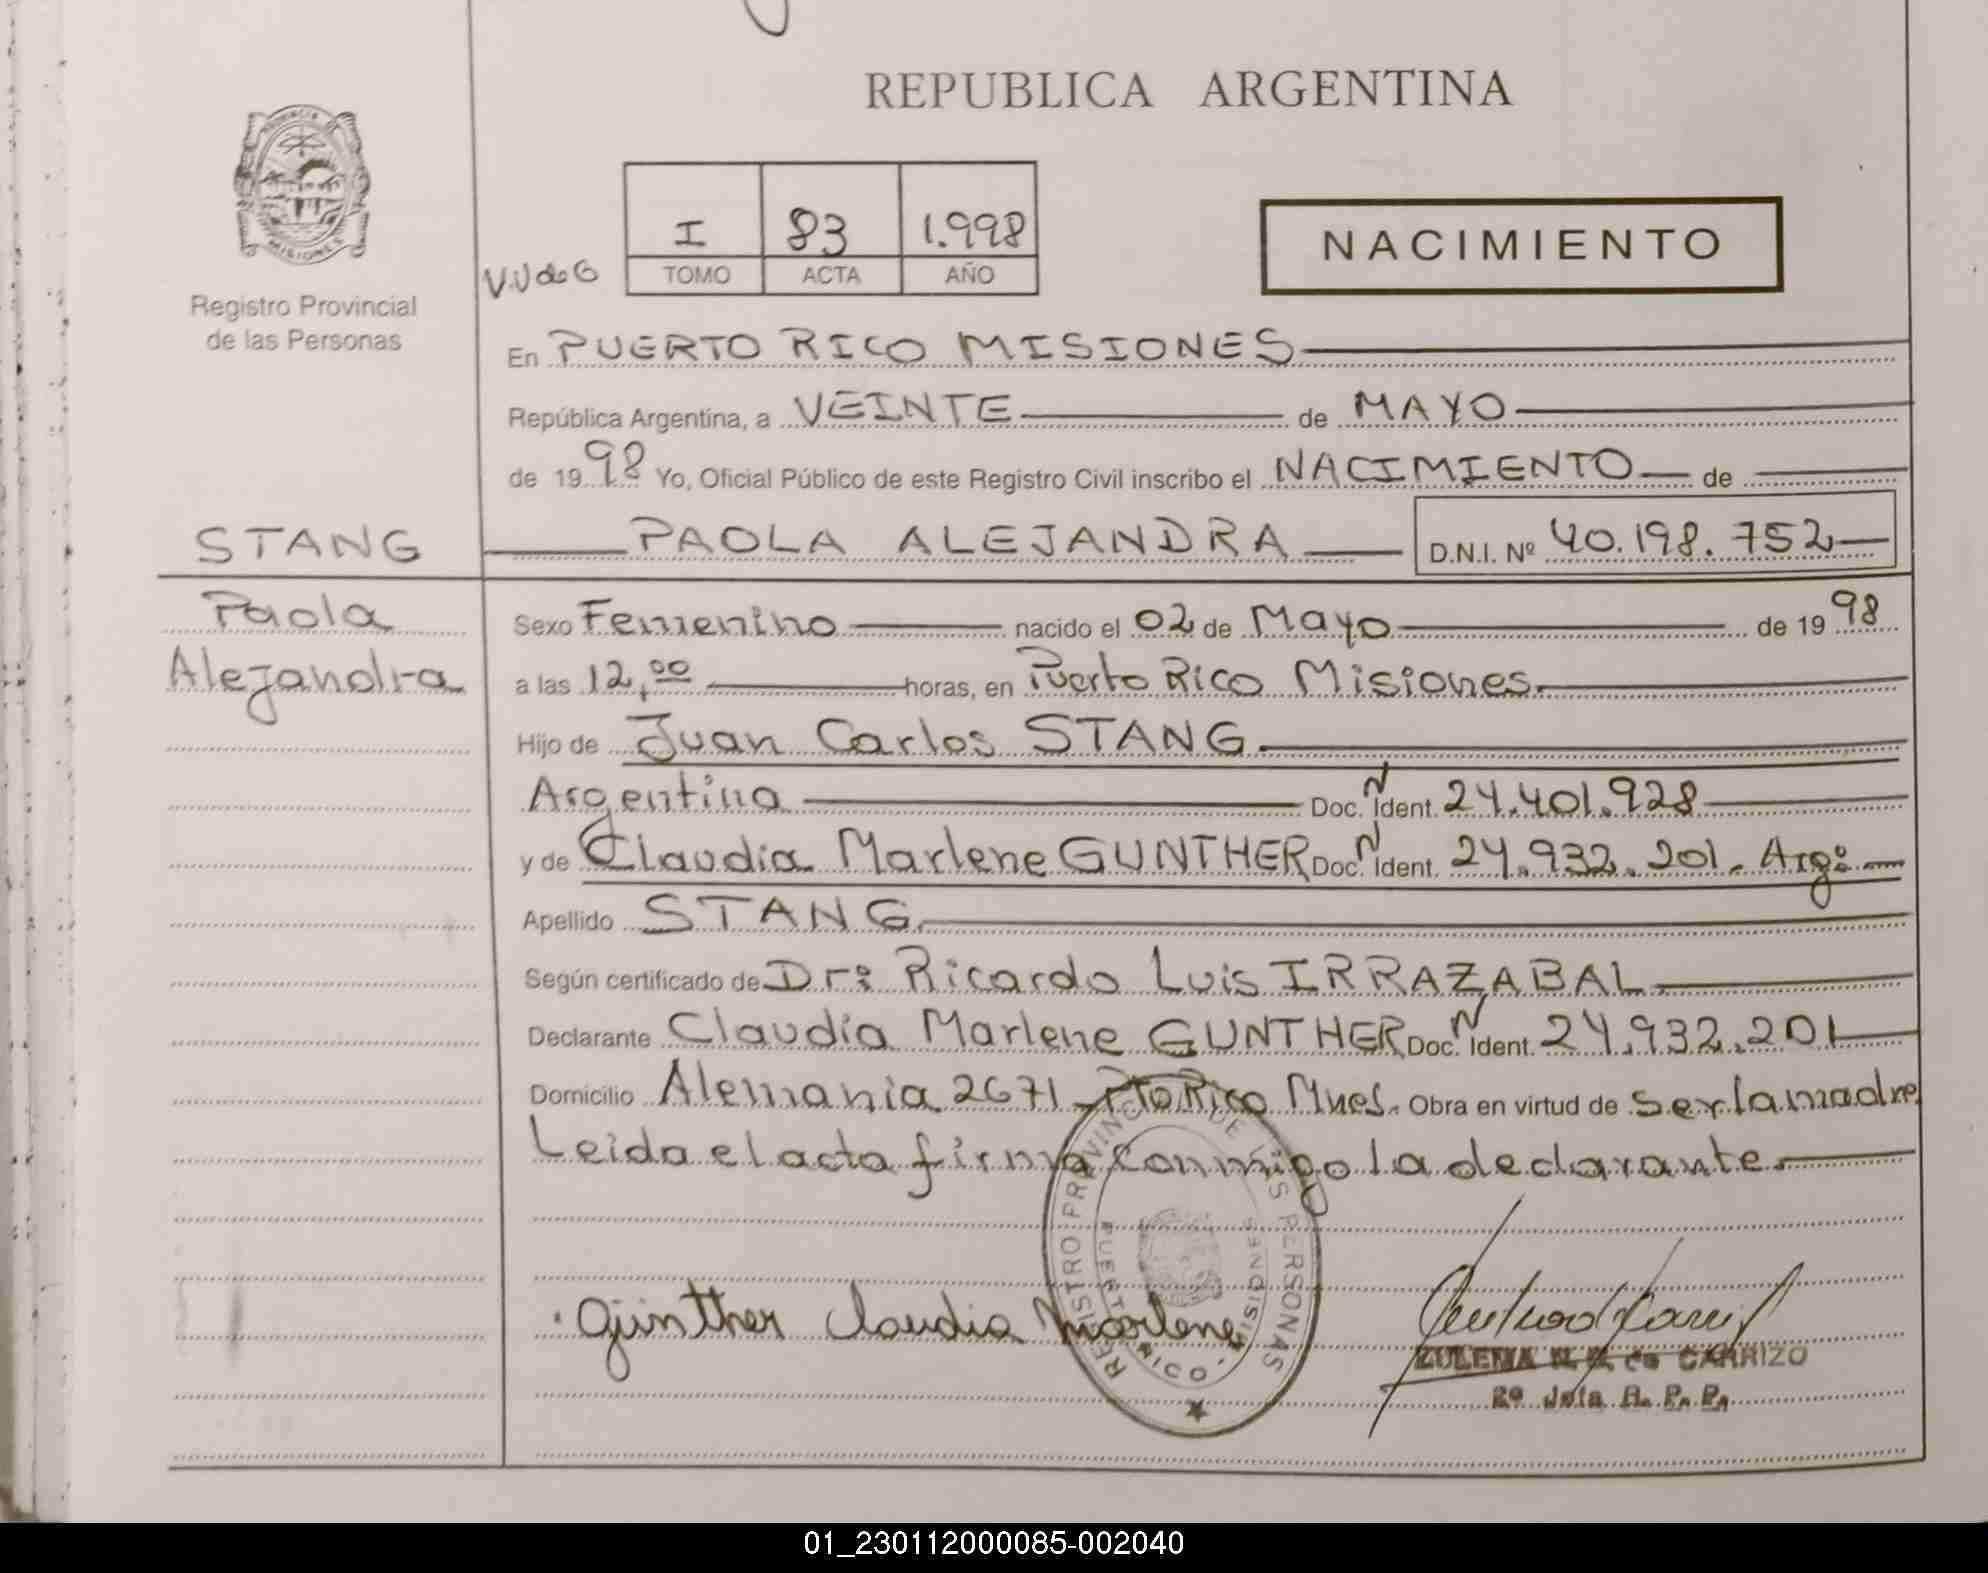 REPUBLICA ARGENTINA
PROVINCIA DE
MISIONES
Registro Provincial
de las Personas
I 83 1.998
TOMO ACTA AÑO
NACIMIENTO
En PUERTO RICO MISIONES
República Argentina, a VEINTE de MAYO
de 1998 Yo, Oficial Público de este Registro Civil inscribo el NACIMIENTO de
STANG
PAOLA ALEJANDRA D.N.I. Nº 40.198.752
Paola
Alejandra
Sexo Femenino nacido el 02 de Mayo de 1998
a las 12,00 horas, en Puerto Rico Misiones.
Hijo de Juan Carlos STANG
Argentina Doc. N Ident. 24.401.928
y de Claudia Marlene GUNTHER Doc. N Ident. 24.932.201. Arg:
Apellido STANG
Según certificado de Dr: Ricardo Luis IRRAZABAL
Declarante Claudia Marlene GUNTHER Doc. N Ident. 24.932.201
Domicilio Alemania 2671 Pto Rico Mnes. Obra en virtud de ser la madre
Leida el acta firma conmigo la declarante.
REGISTRO PROVINCIAL DE LAS PERSONAS
PUERTO RICO - MISIONES
Günther Claudia Marlene
ZULEMA de CARRIZO
2º Jefa R. P. P.
01_230112000085-002040